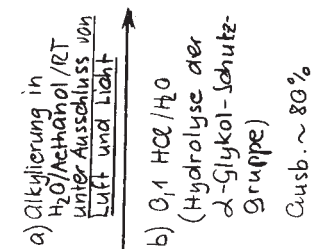 a) Alkylierung in
H₂O/Aethanol/RT
unter Ausschluss von
Luft und Licht
b) 0,1 HCl/H₂O
(Hydrolyse der
α-Glykol-Schutz-
gruppe)
Ausb. ~ 80%